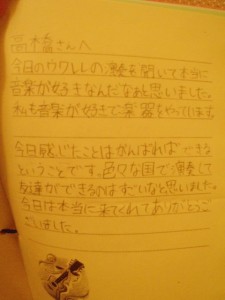 高橋さんへ
今日のウクレレの演奏を聞いて本当に
音楽が好きなんだなぁと思いました。
私も音楽が好きで、楽器をやってます
今日感じたことはがんばればできる
ということです。色々な国で演奏して
友達ができるのはすごいなと思いました。
今日は本当に来てくれてありがとうご
ございました。